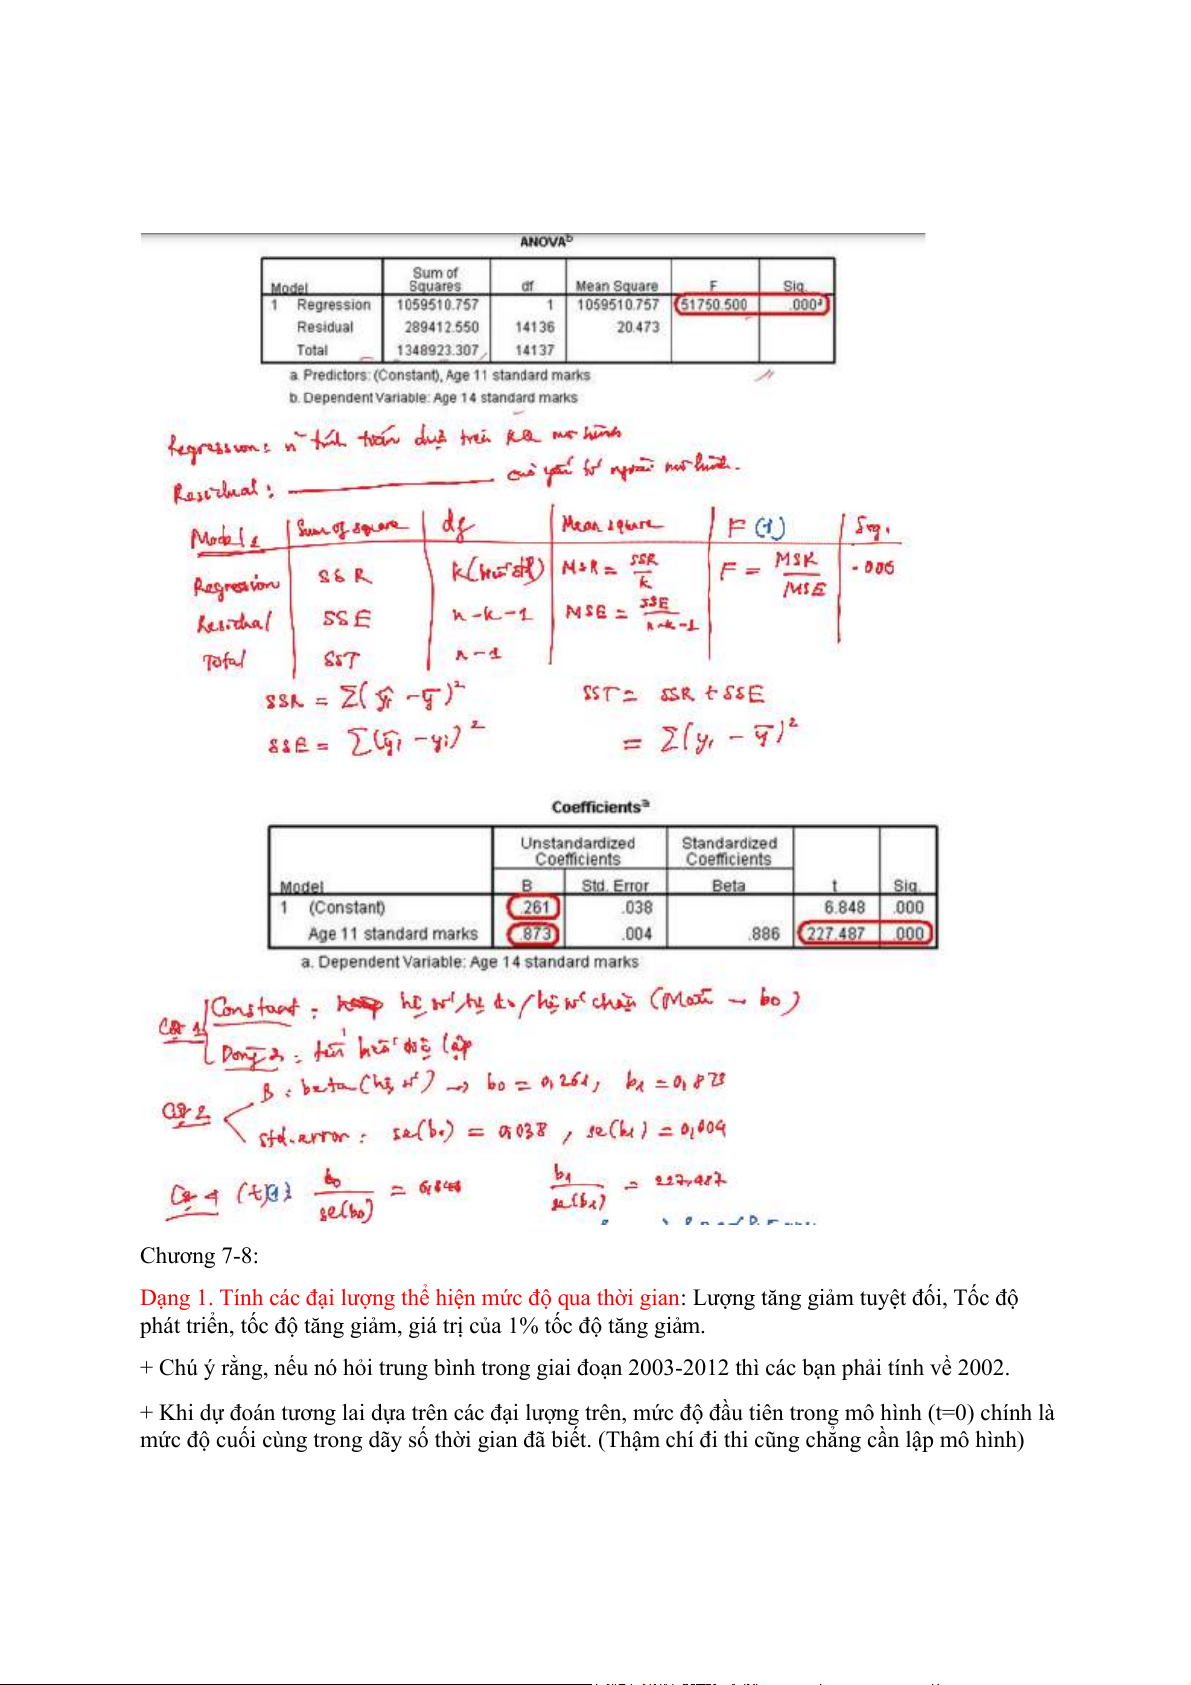 ANOVAᵇ
Model Sum of Squares df Mean Square F Sig.
1 Regression 1059510.757 1 1059510.757 51750.500 .000ᵃ
Residual 289412.550 14136 20.473
Total 1348923.307 14137
a. Predictors: (Constant), Age 11 standard marks
b. Dependent Variable: Age 14 standard marks
Regression: tính toán dựa trên KQ mô hình
Residual: yếu tố ngoài mô hình.
Model Sum of square df Mean square F (1) Sig.
Regression SSR k MSR = SSR/k F = MSR/MSE .000
Residual SSE n-k-1 MSE = SSE/n-k-1
Total SST n-1
SSR = Σ(ŷi - ȳ)² SST = SSR + SSE
SSE = Σ(ŷi - yi)² = Σ(yi - ȳ)²
Coefficientsᵃ
Model Unstandardized Coefficients Standardized Coefficients t Sig.
B Std. Error Beta
1 (Constant) .261 .038 6.848 .000
Age 11 standard marks .873 .004 .886 227.487 .000
a. Dependent Variable: Age 14 standard marks
Cột 1 Constant: hệ số tự do/hệ số chặn - b0)
Dòng 2: tên biến độc lập
B: beta (hệ số) → b0 = 0,261, b1 = 0,873
Cột 2
Std.error: se(b0) = 0,038, se(b1) = 0,004
Cột 4 (t) b0/se(b0) = 6,848 b1/se(b1) = 227,487
Chương 7-8:
Dạng 1. Tính các đại lượng thể hiện mức độ qua thời gian: Lượng tăng giảm tuyệt đối, Tốc độ
phát triển, tốc độ tăng giảm, giá trị của 1% tốc độ tăng giảm.
+ Chú ý rằng, nếu nó hỏi trung bình trong giai đoạn 2003-2012 thì các bạn phải tính về 2002.
+ Khi dự đoán tương lai dựa trên các đại lượng trên, mức độ đầu tiên trong mô hình (t=0) chính là
mức độ cuối cùng trong dãy số thời gian đã biết. (Thậm chí đi thi cũng chẳng cần lập mô hình)